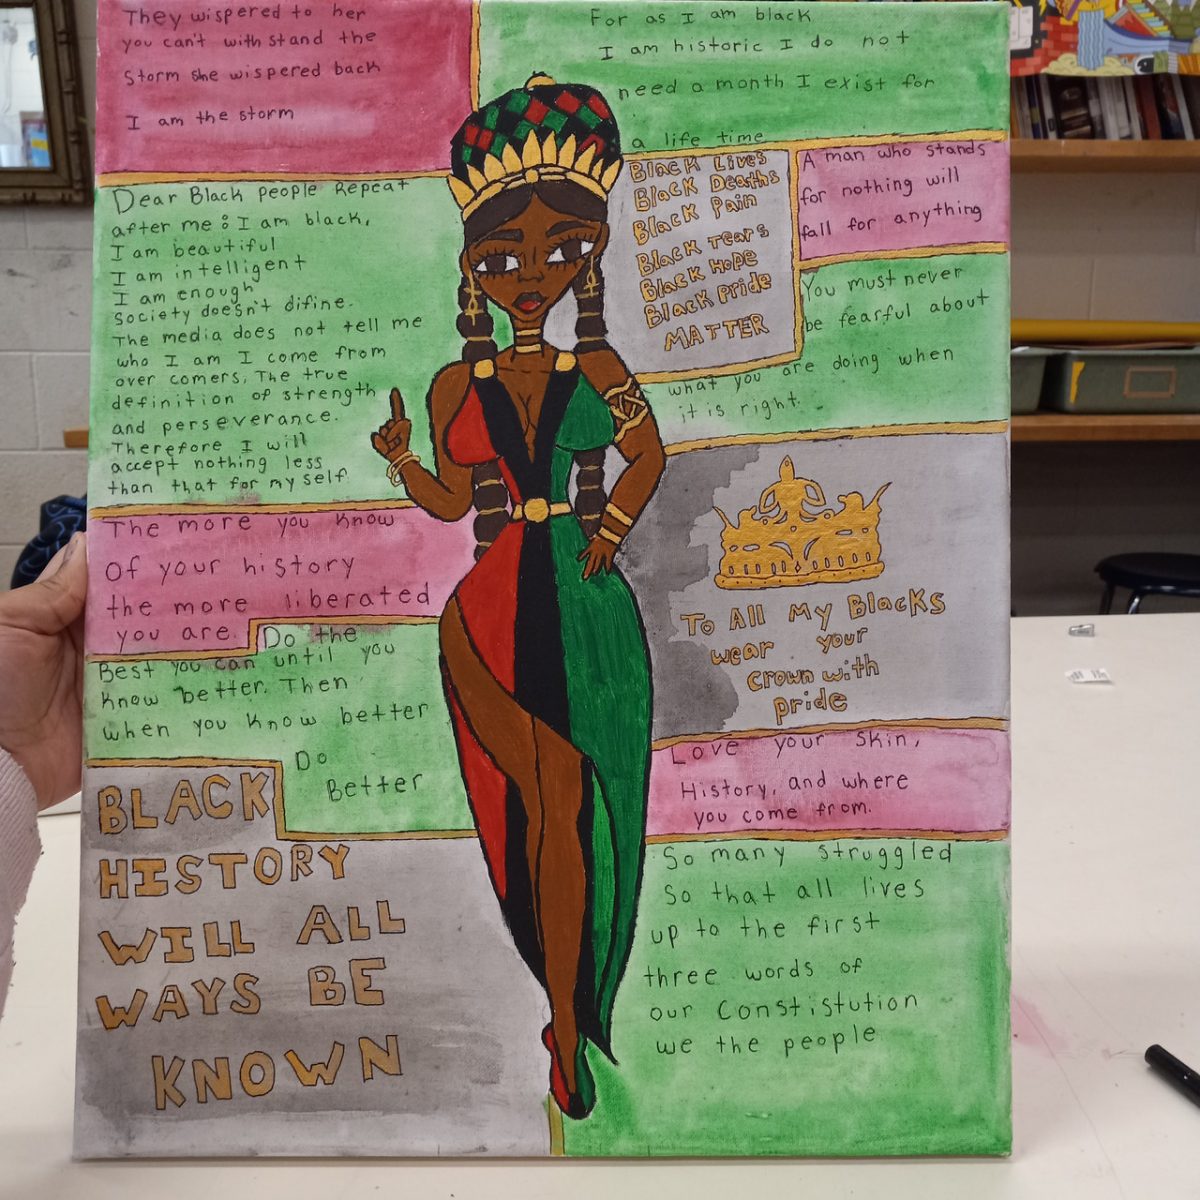 They wispered to her
you can't with stand the
storm she wispered back
I am the storm
For as I am black
I am historic I do not
need a month I exist for
a life time
Dear Black people Repeat
after me: I am black,
I am beautiful
I am intelligent
I am enough
society doesn't difine.
The media does not tell me
who I am I come from
over comers. The true
definition of strength
and perseverance.
Therefore I will
accept nothing less
than that for my self
Black Lives
Black Deaths
Black Pain
Black Tears
Black Hope
Black Pride
MATTER
A man who stands
for nothing will
fall for anything
You must never
be fearful about
what you are doing when
it is right.
The more you know
Of your history
the more liberated
you are.
Do the
Best you can until you
know better. Then
when you know better
Do
Better
To All My Blacks
wear your
crown with
pride
Love your skin,
History, and where
you come from.
BLACK
HISTORY
WILL ALL
WAYS BE
KNOWN
So many struggled
So that all lives
up to the first
three words of
our Constistution
we the people